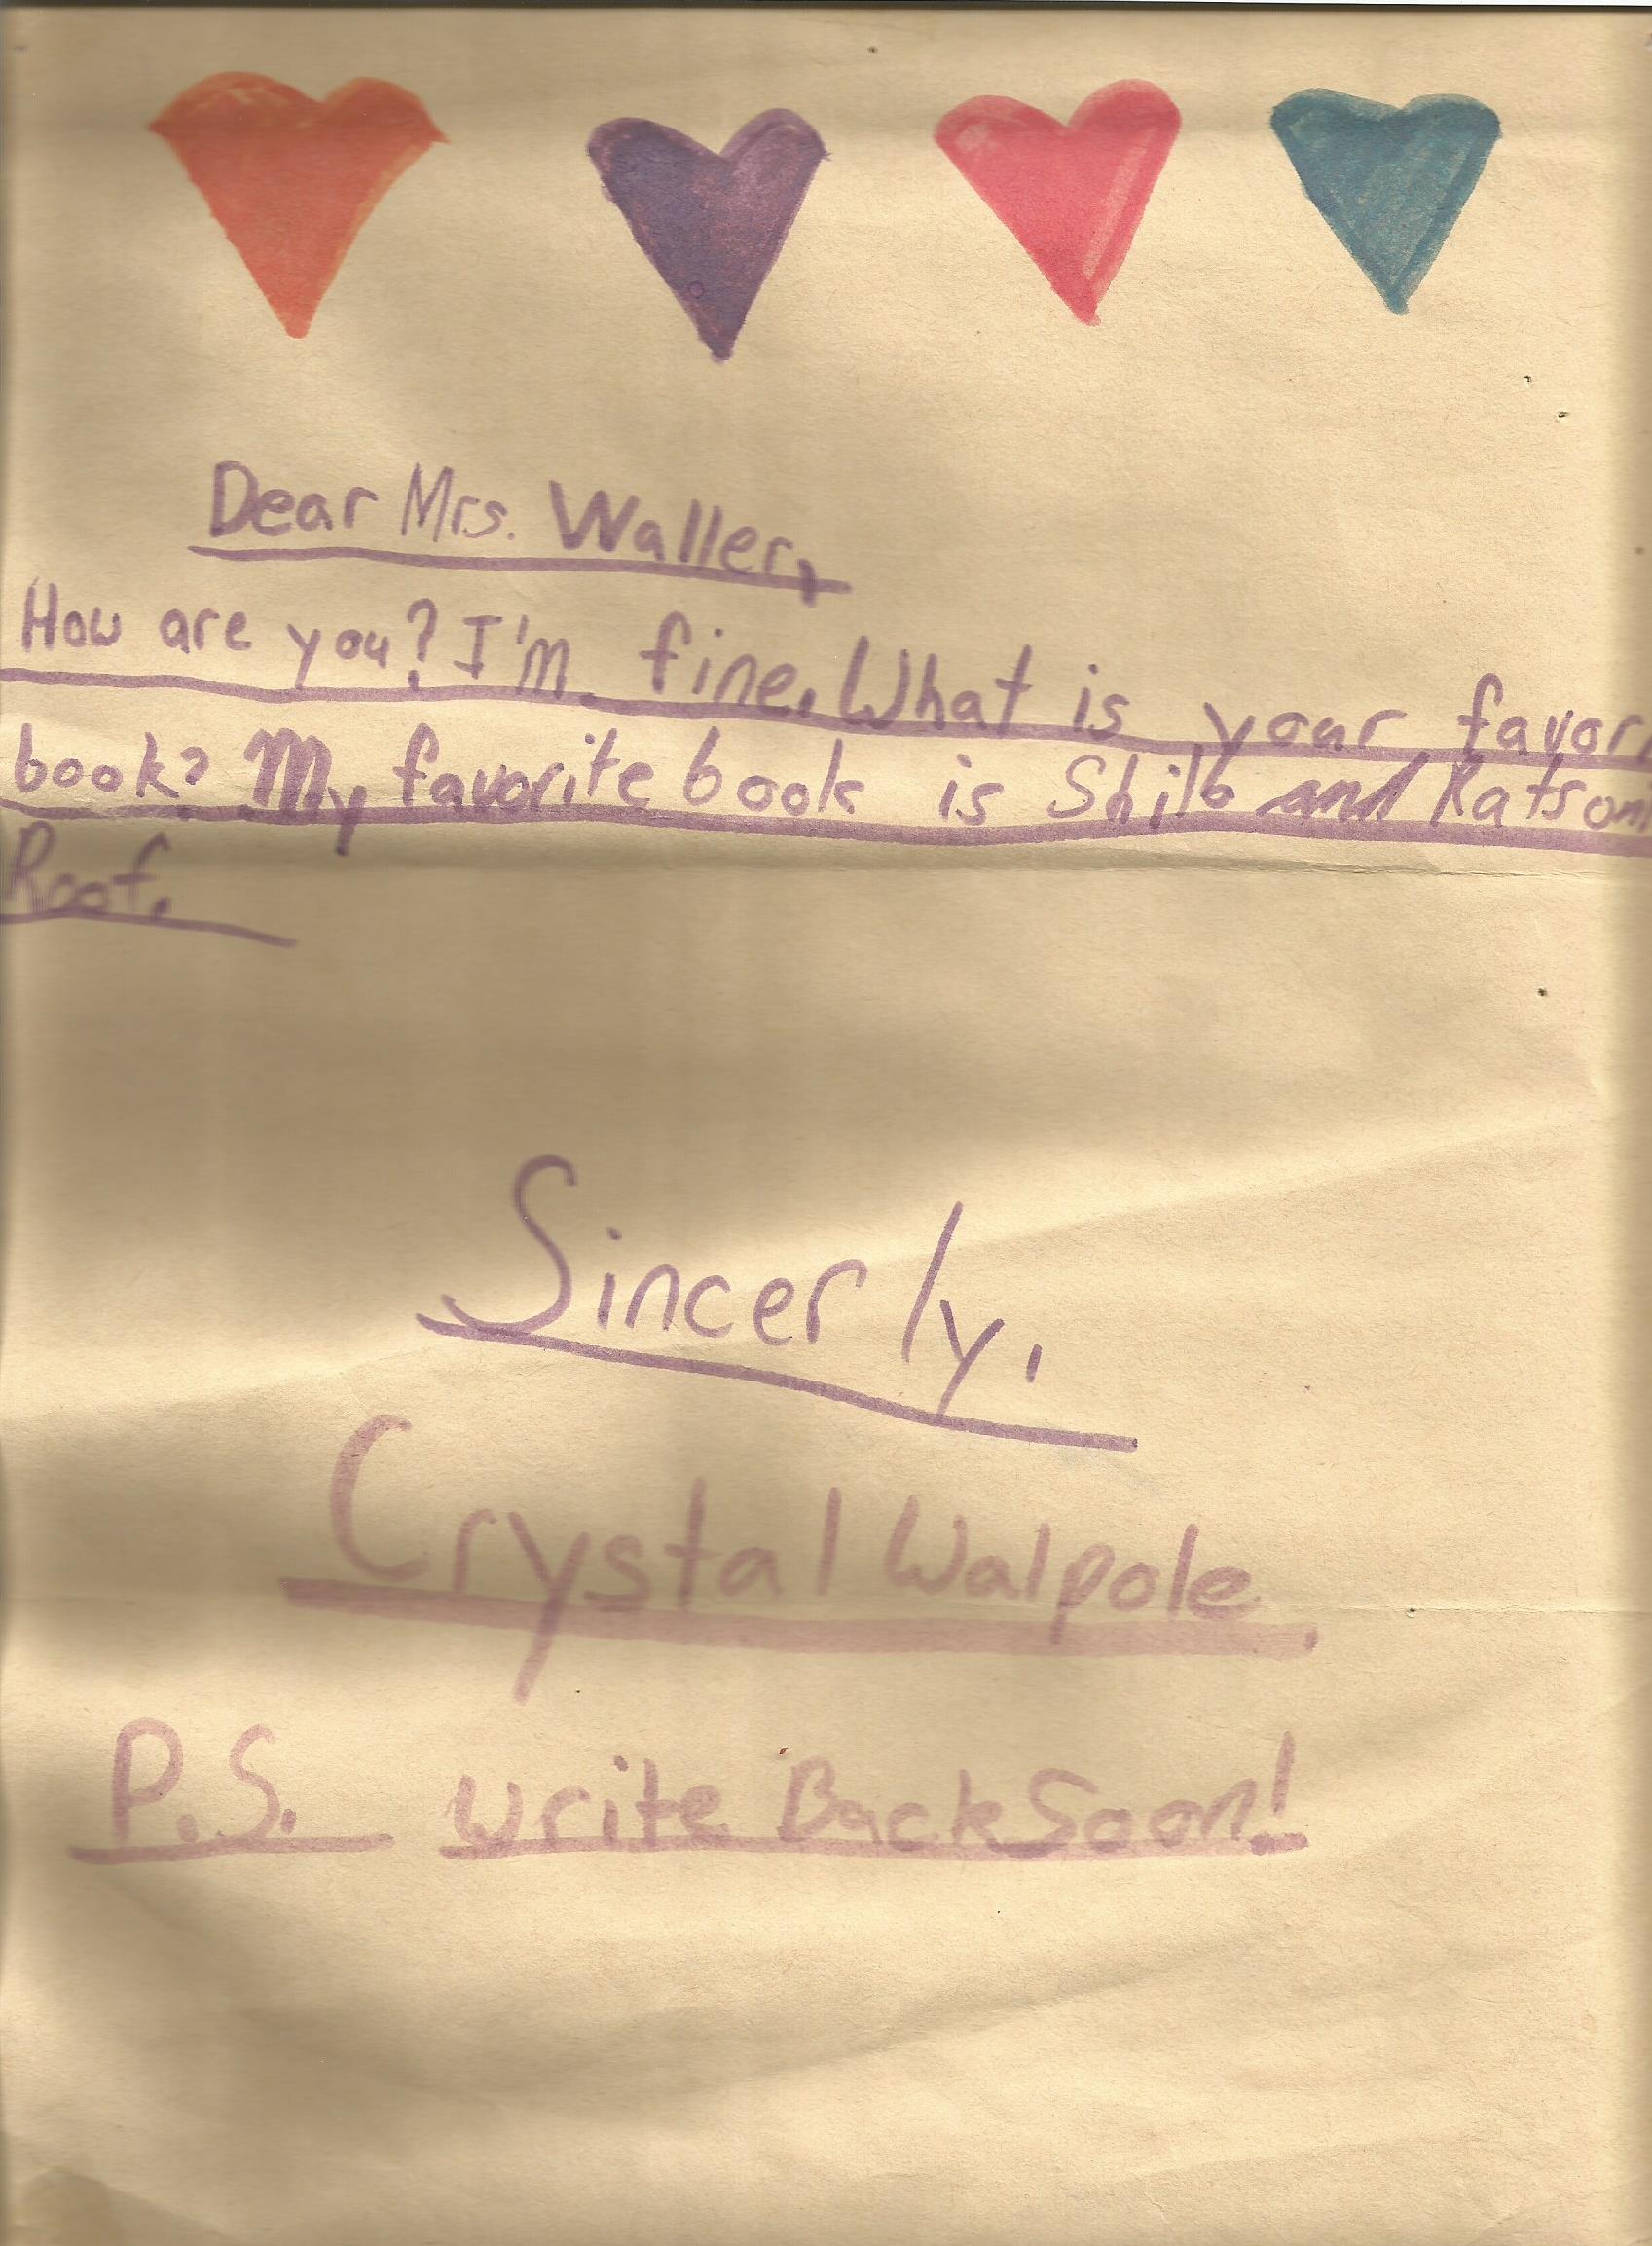 Dear Mrs. Waller,
How are you? I'm fine. What is your favori
book? My favorite book is Shilo and Rats on
Roof.
Sincerly,
Crystal Walpole
P.S. write Back Soon!